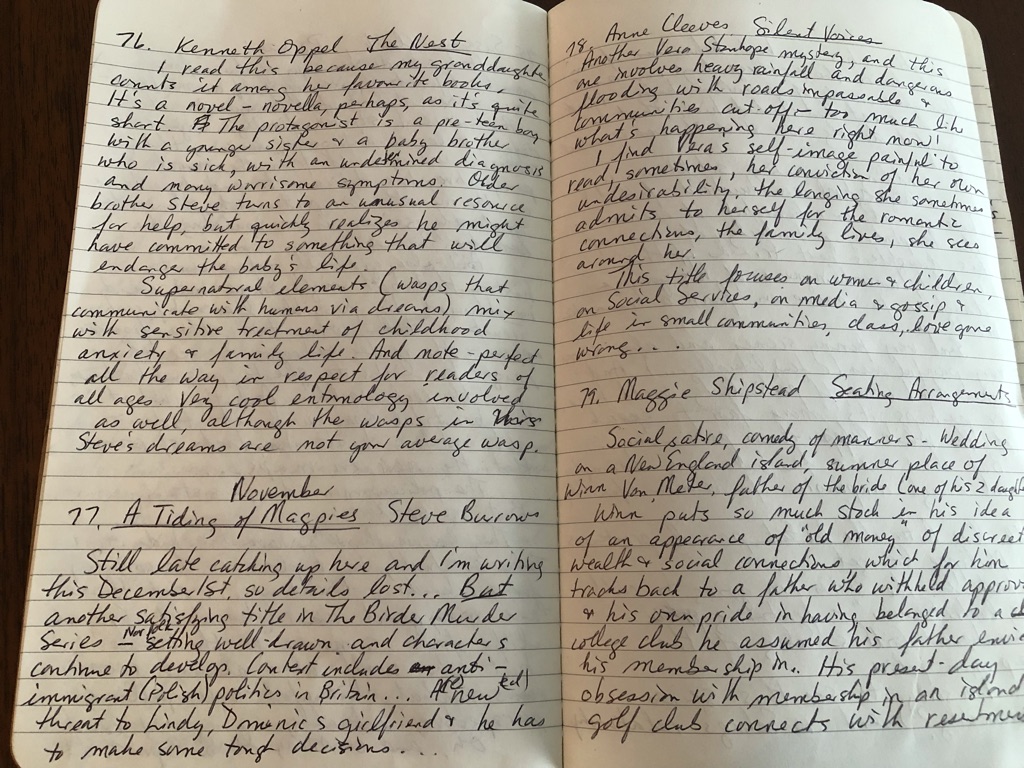 76. Kenneth Oppel The Nest
I read this because my granddaughter
counts it among her favourite books.
It's a novel - novella, perhaps, as it's quite
short. The protagonist is a pre-teen boy
with a younger sister & a baby brother
who is sick, with an undetermined diagnosis
and many worrisome symptoms. Older
brother Steve turns to an unusual resource
for help, but quickly realizes he might
have committed to something that will
endanger the baby's life.
Supernatural elements (wasps that
communicate with humans via dreams) mix
with sensitive treatment of childhood
anxiety & family life. And note-perfect
all the way in respect for readers of
all ages. Very cool entomology involved
as well, although the wasps in
Steve's dreams are not your average wasp.
November
77. A Tiding of Magpies. Steve Burrows
Still late catching up here and I'm writing
this December 1st, so details lost... But
another satisfying title in The Birder Murder
Series - setting well-drawn and characters
continue to develop. Context includes anti-
immigrant (Polish) politics in Britain... A new
threat to Lindy, Dominic's girlfriend & he has
to make some tough decisions....
78. Anne Cleeves. Silent Voices
Another Vera Stanhope mystery, and this
one involves heavy rainfall and dangerous
flooding with roads impassable &
communities cut off - too much like
what's happening here right now!
I find Vera's self-image painful to
read sometimes, her conviction of her own
undesirability, the longing she sometimes
admits to herself for the romantic
connections, the family lives, she sees
around her.
This title focuses on women & children,
on Social Services, on media & gossip &
life in small communities, class, love gone
wrong....
79. Maggie Shipstead Seating Arrangements
Social satire, comedy of manners - Wedding
on a New England island, summer place of
Winn Van Meter, father of the bride (one of his 2 daught
Winn puts so much stock in his idea
of an appearance of "old money" of discreet
wealth & social connections which for him
tracks back to a father who withheld approv
& his own pride in having belonged to a
college club he assumed his father envi
his membership in.. His present-day
obsession with membership in an island
golf club connects with resentmen